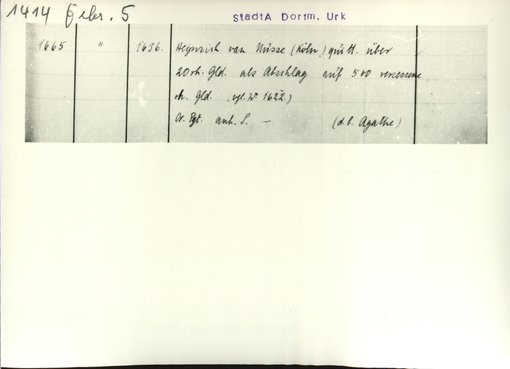 1414 Febr. 5
StadtA Dortm. Urk
1665 " 1636. Heynrich van Nüsse (Köln) quitt. über
20 rh. Gld. als Abschlag auf 500 versessene
rh. Gld. (vgl. Nr 1622)
Or. Pgt. anh. S. — (d. l. Agathe)